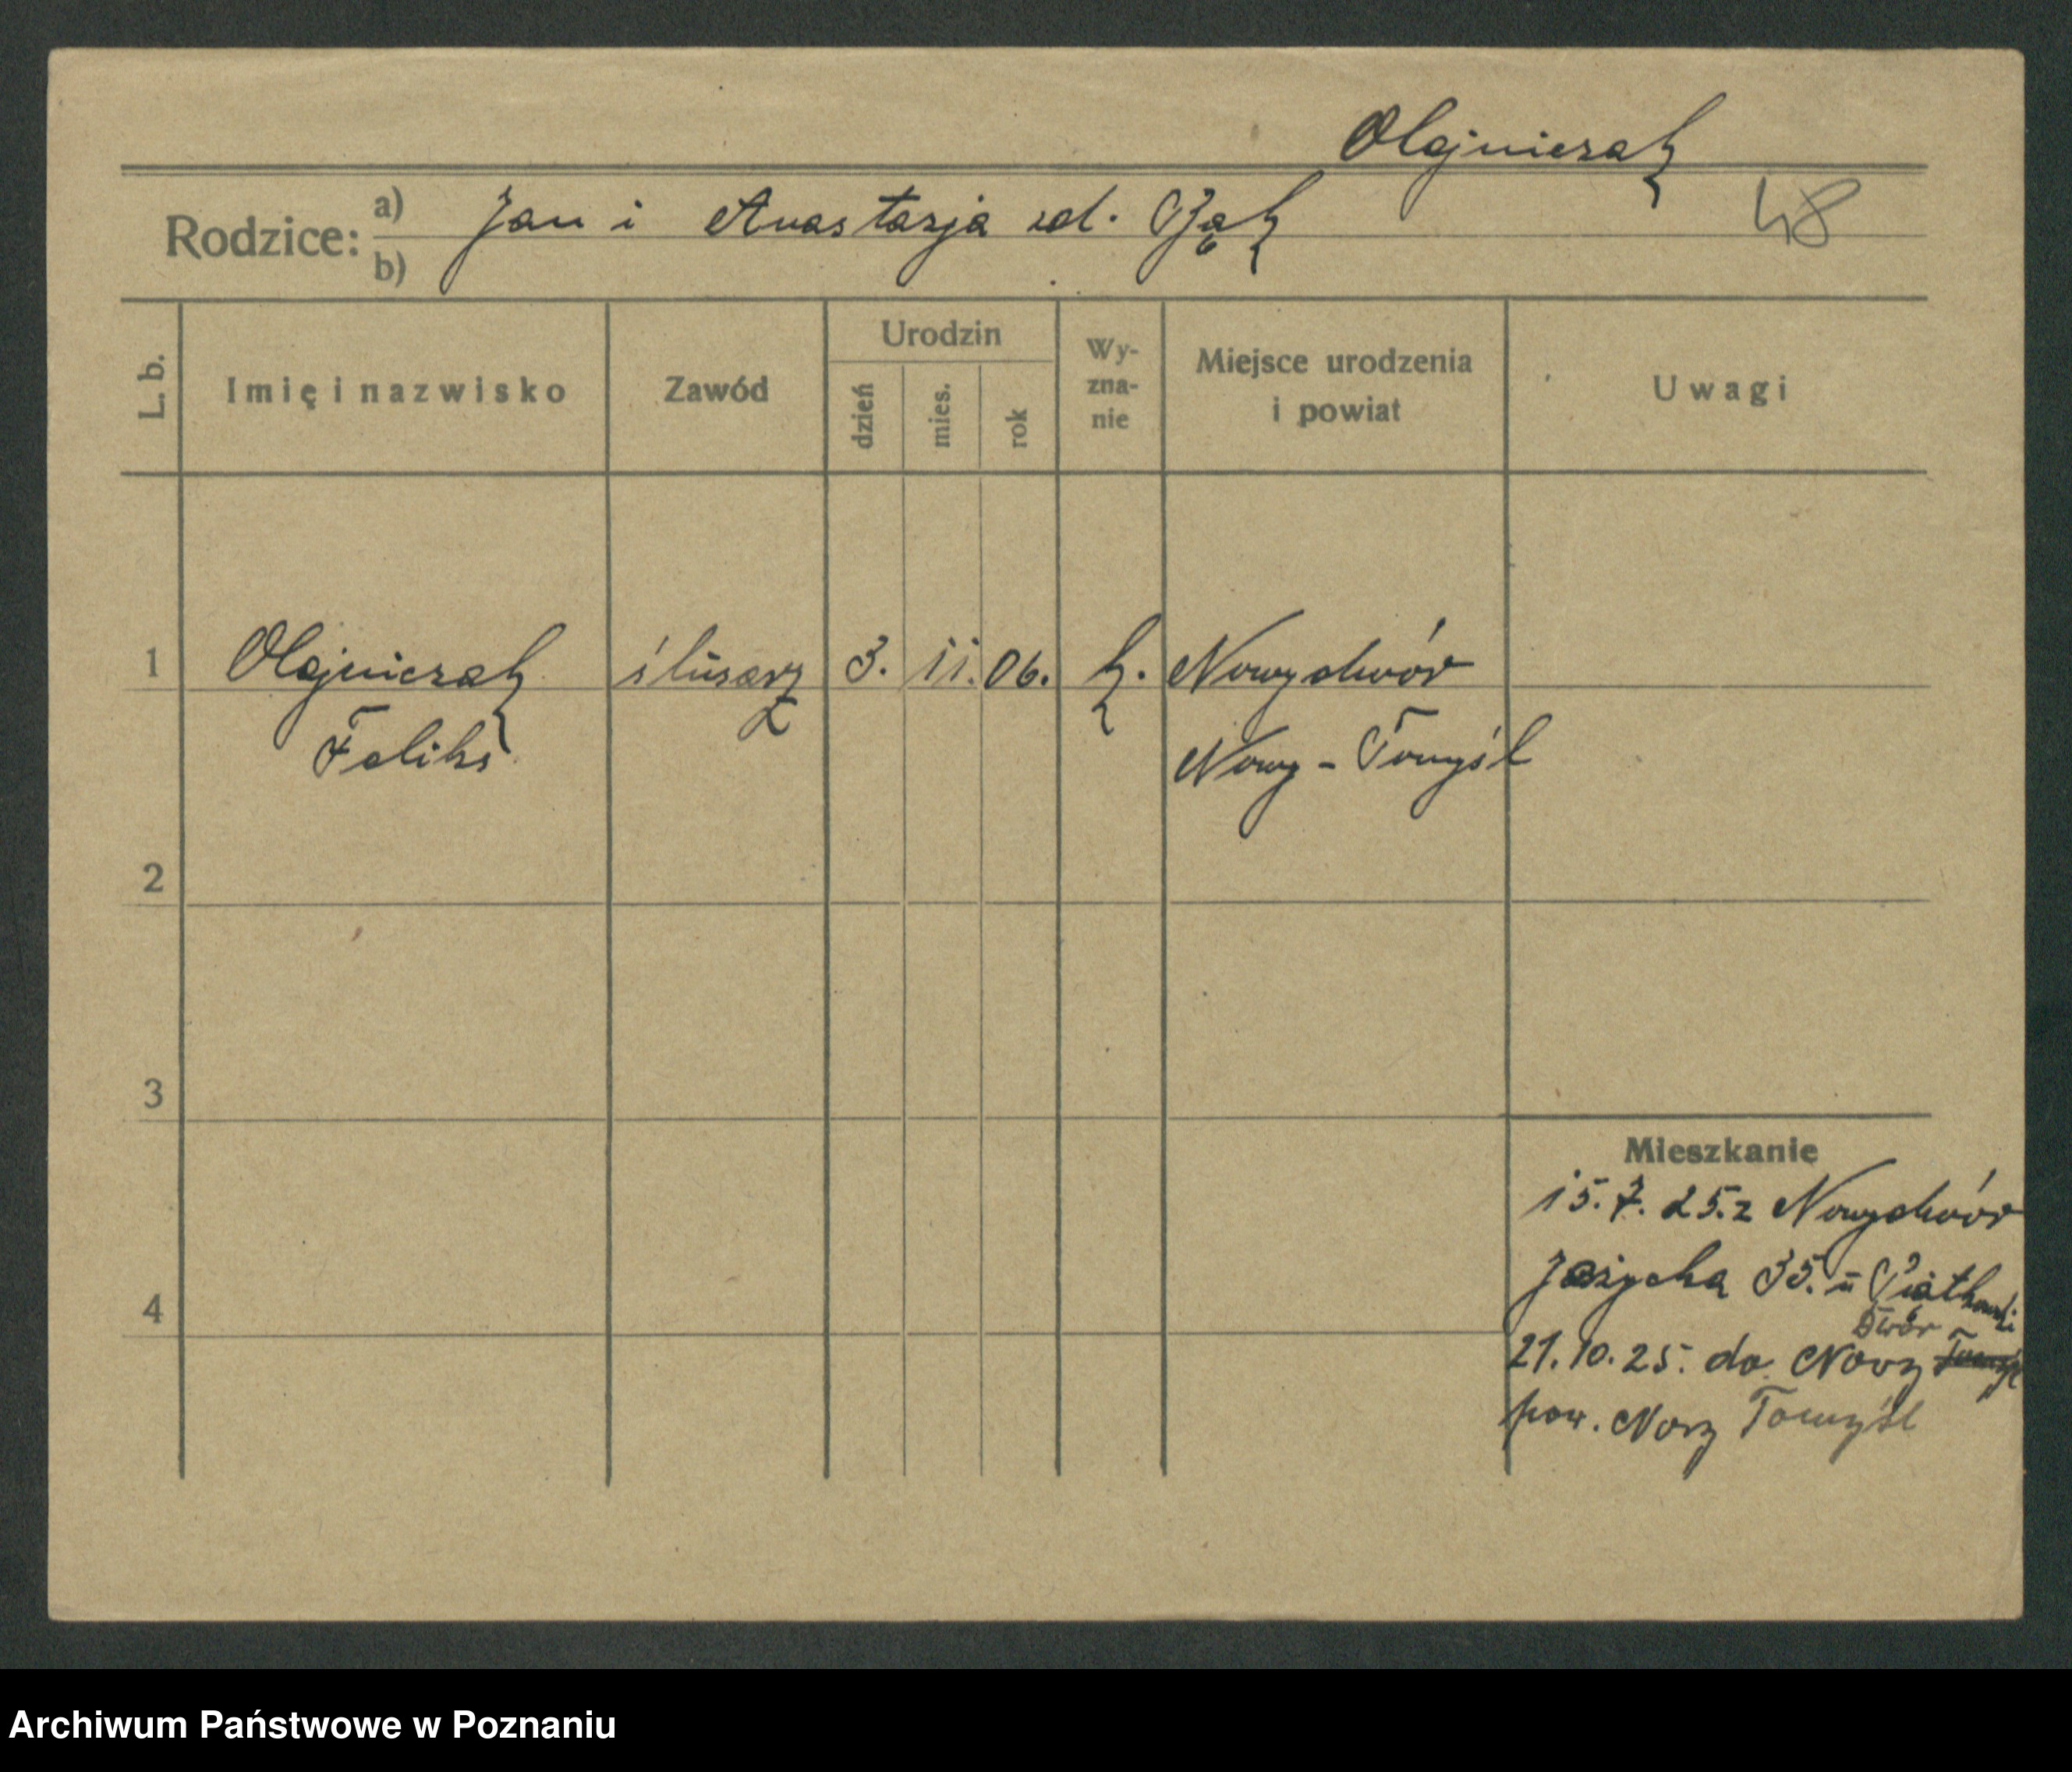 Olejniczak
48
Rodzice: a) Jan i Anastazja zd. Bąk
b)
L. b. Imię i nazwisko Zawód Urodzin dzień mies. rok Wy-zna-nie Miejsce urodzenia i powiat Uwagi
1 Olejniczak ślusarz 3. 11. 06. k. Nowydwór
Feliks Nowy-Tomyśl
2
3
Mieszkanie
15.7.25. z Nowydwór
35. u Piątkowski
4
Dwór
21.10.25. do Nowy Tomyśl
pow. Nowy Tomyśl
Archiwum Państwowe w Poznaniu